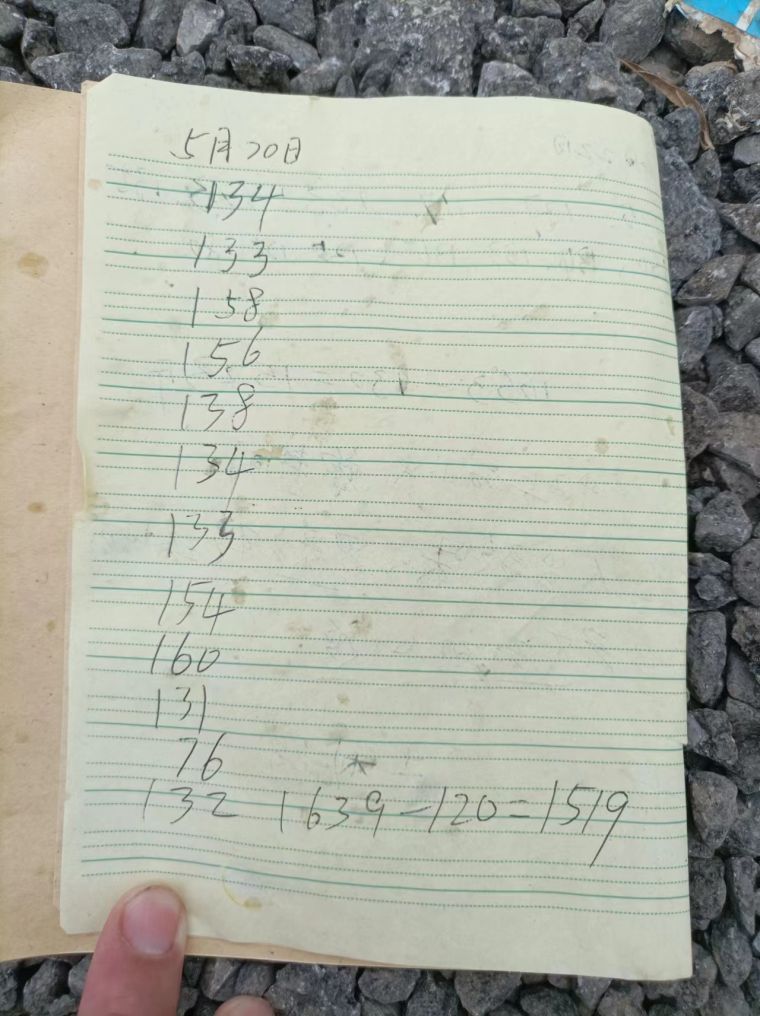 5月20日
134
133
158
156
138
134
133
154
160
131
76
132 1639-120=1519